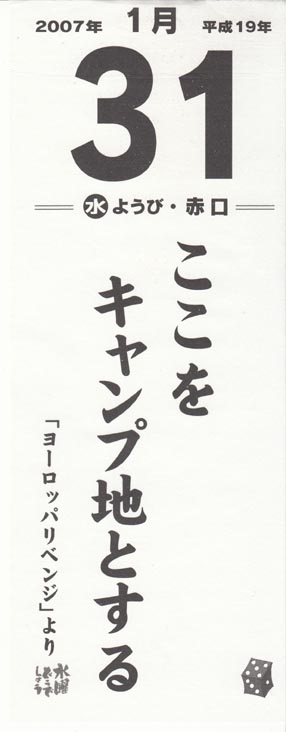 2007年 1月 平成19年
31
水ようび・赤口
ここを
キャンプ地とする
「ヨーロッパリベンジ」より
水曜
どうで
しょう